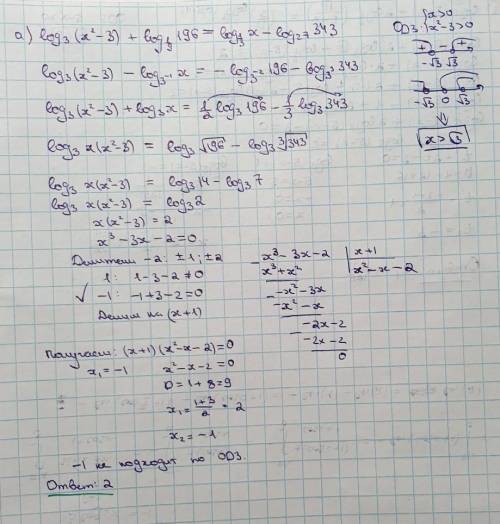 а) log₃(x²-3) + log_{1/9} 196 = log_{1/3} x - log₂₇ 343
ОДЗ: { x>0
x²-3>0
+ - +
-√3 √3
log₃(x²-3) - log_{3⁻¹} x = - log_{3⁻²} 196 - log_{3³} 343
-√3 0 √3
log₃(x²-3) + log₃x = 1/2 log₃ 196 - 1/3 log₃ 343
⇓
x>√3
log₃ x(x²-3) = log₃ √196 - log₃ ∛343
log₃ x(x²-3) = log₃ 14 - log₃ 7
log₃ x(x²-3) = log₃ 2
x(x²-3) = 2
x³ - 3x - 2 = 0
Делители -2: ±1; ±2
1: 1-3-2 ≠ 0
✓ -1: -1+3-2 = 0
Делим на (x+1)
x³ - 3x - 2 | x+1
x³+x² | x² - x - 2
-x² - 3x
-x² - x
-2x - 2
-2x - 2
0
Получаем: (x+1)(x²-x-2)=0
x₁ = -1 x²-x-2 = 0
D = 1+8 = 9
x₁ = (1+3)/2 = 2
x₂ = -1
-1 не подходит по ОДЗ.
Ответ: 2